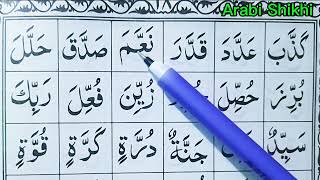 Arabi Shikhi
١٨
كَذَّبَ عَدَّدَ قَدَّرَ نَعَّمَ صَدَّقَ حَلَّلَ
بُرِّزَ حُصِّلَ زُيِّنَ فُعِّلَ رَبِّكَ
سَيِّدٌ جَنَّةٌ دُرَّةٍ كَرَّةٍ قُوَّةٍ